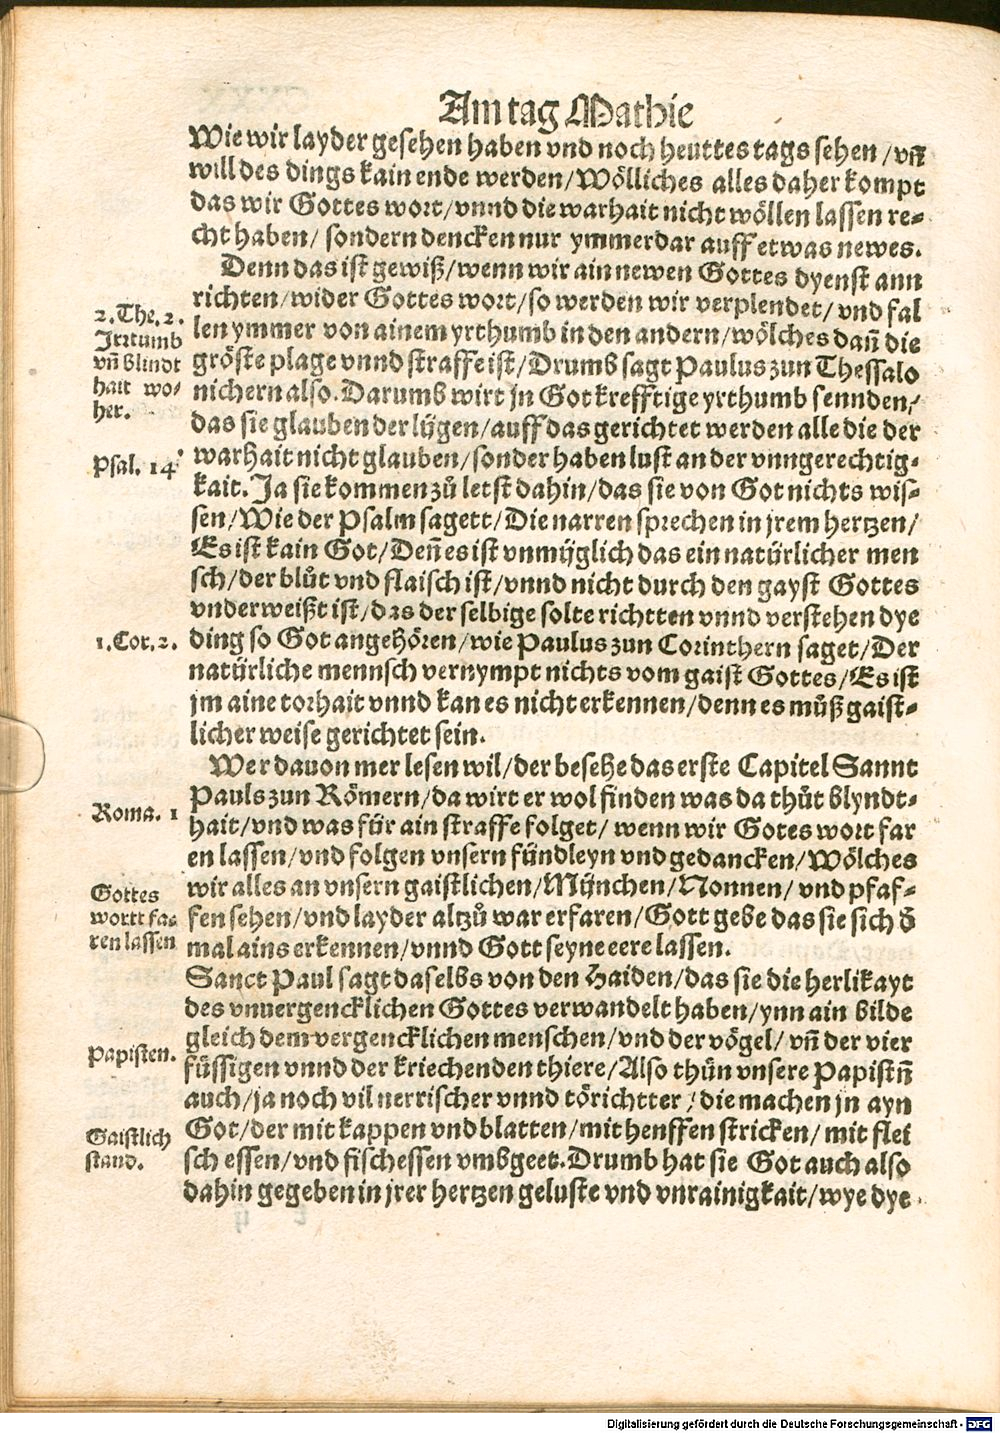 Am tag Mathie
Wie wir layder gesehen haben vnd noch heuttes tags sehen / vñ
will des dings kain ende werden / Wölliches alles daher kompt
das wir Gottes wort / vnnd die warhait nicht wöllen lassen re-
cht haben / sondern dencken nur ymmerdar auff etwas newes.
Denn das ist gewiß / wenn wir ain newen Gottes dyenst ann
richten / wider Gottes wort / so werden wir verplendet / vnd fal
len ymmer von ainem yrthumb in den andern / wölches dañ die
gröste plage vnnd straffe ist / Drumb sagt Paulus zun Thessalo
nichern also. Darumb wirt jn Got krefftige yrthumb sennden /
das sie glauben der lügen / auff das gerichtet werden alle die der
warhait nicht glauben / sonder haben lust an der vnngerechtig-
kait. Ja sie kommen zů letst dahin / das sie von Got nichts wis-
sen / Wie der Psalm sagett / Die narren sprechen in jrem hertzen /
Es ist kain Got / Deñ es ist vnmüglich das ein natürlicher men
sch / der blůt vnd flaisch ist / vnnd nicht durch den gayst Gottes
vnderweißt ist / das der selbige solte richtten vnnd verstehen dye
ding so Got angehören / wie Paulus zun Corinthern saget / Der
natürliche mennsch vernympt nichts vom gaist Gottes / Es ist
jm aine torhait vnnd kan es nicht erkennen / denn es můß gaist-
licher weise gerichtet sein.
Wer dauon mer lesen wil / der besehe das erste Capitel Sannt
Pauls zun Römern / da wirt er wol finden was da thůt blyndt-
hait / vnd was für ain straffe folget / wenn wir Gotes wort far
en lassen / vnd folgen vnsern fündleyn vnd gedancken / Wölches
wir alles an vnsern gaistlichen / München / Nonnen / vnd pfaf-
fen sehen / vnd layder altzů war erfaren / Gott gebe das sie sich d̄
mal ains erkennen / vnnd Gott seyne eere lassen.
Sanct Paul sagt daselbs von den Haiden / das sie die herlikayt
des vnuergencklichen Gottes verwandelt haben / ynn ain bilde
gleich dem vergencklichen menschen / vnd der vögel / vñ der vier
füssigen vnnd der kriechenden thiere / Also thůn vnsere Papistñ
auch / ja noch vil nerrischer vnnd törichtter / die machen jn ayn
Got / der mit kappen vnd blatten / mit henffen stricken / mit flei
sch essen / vnd fisch essen vmbgeet. Drumb hat sie Got auch also
dahin gegeben in jrer hertzen geluste vnd vnrainigkait / wye dye
2. The. 2.
Irrtumb
vñ blindt
hait wo-
her.
Psal. 14
1. Cor. 2.
Roma. 1
Gottes
wortt fa-
ren lassen
Papisten.
Gaistlich
stand.
Digitalisierung gefördert durch die Deutsche Forschungsgemeinschaft - DFG